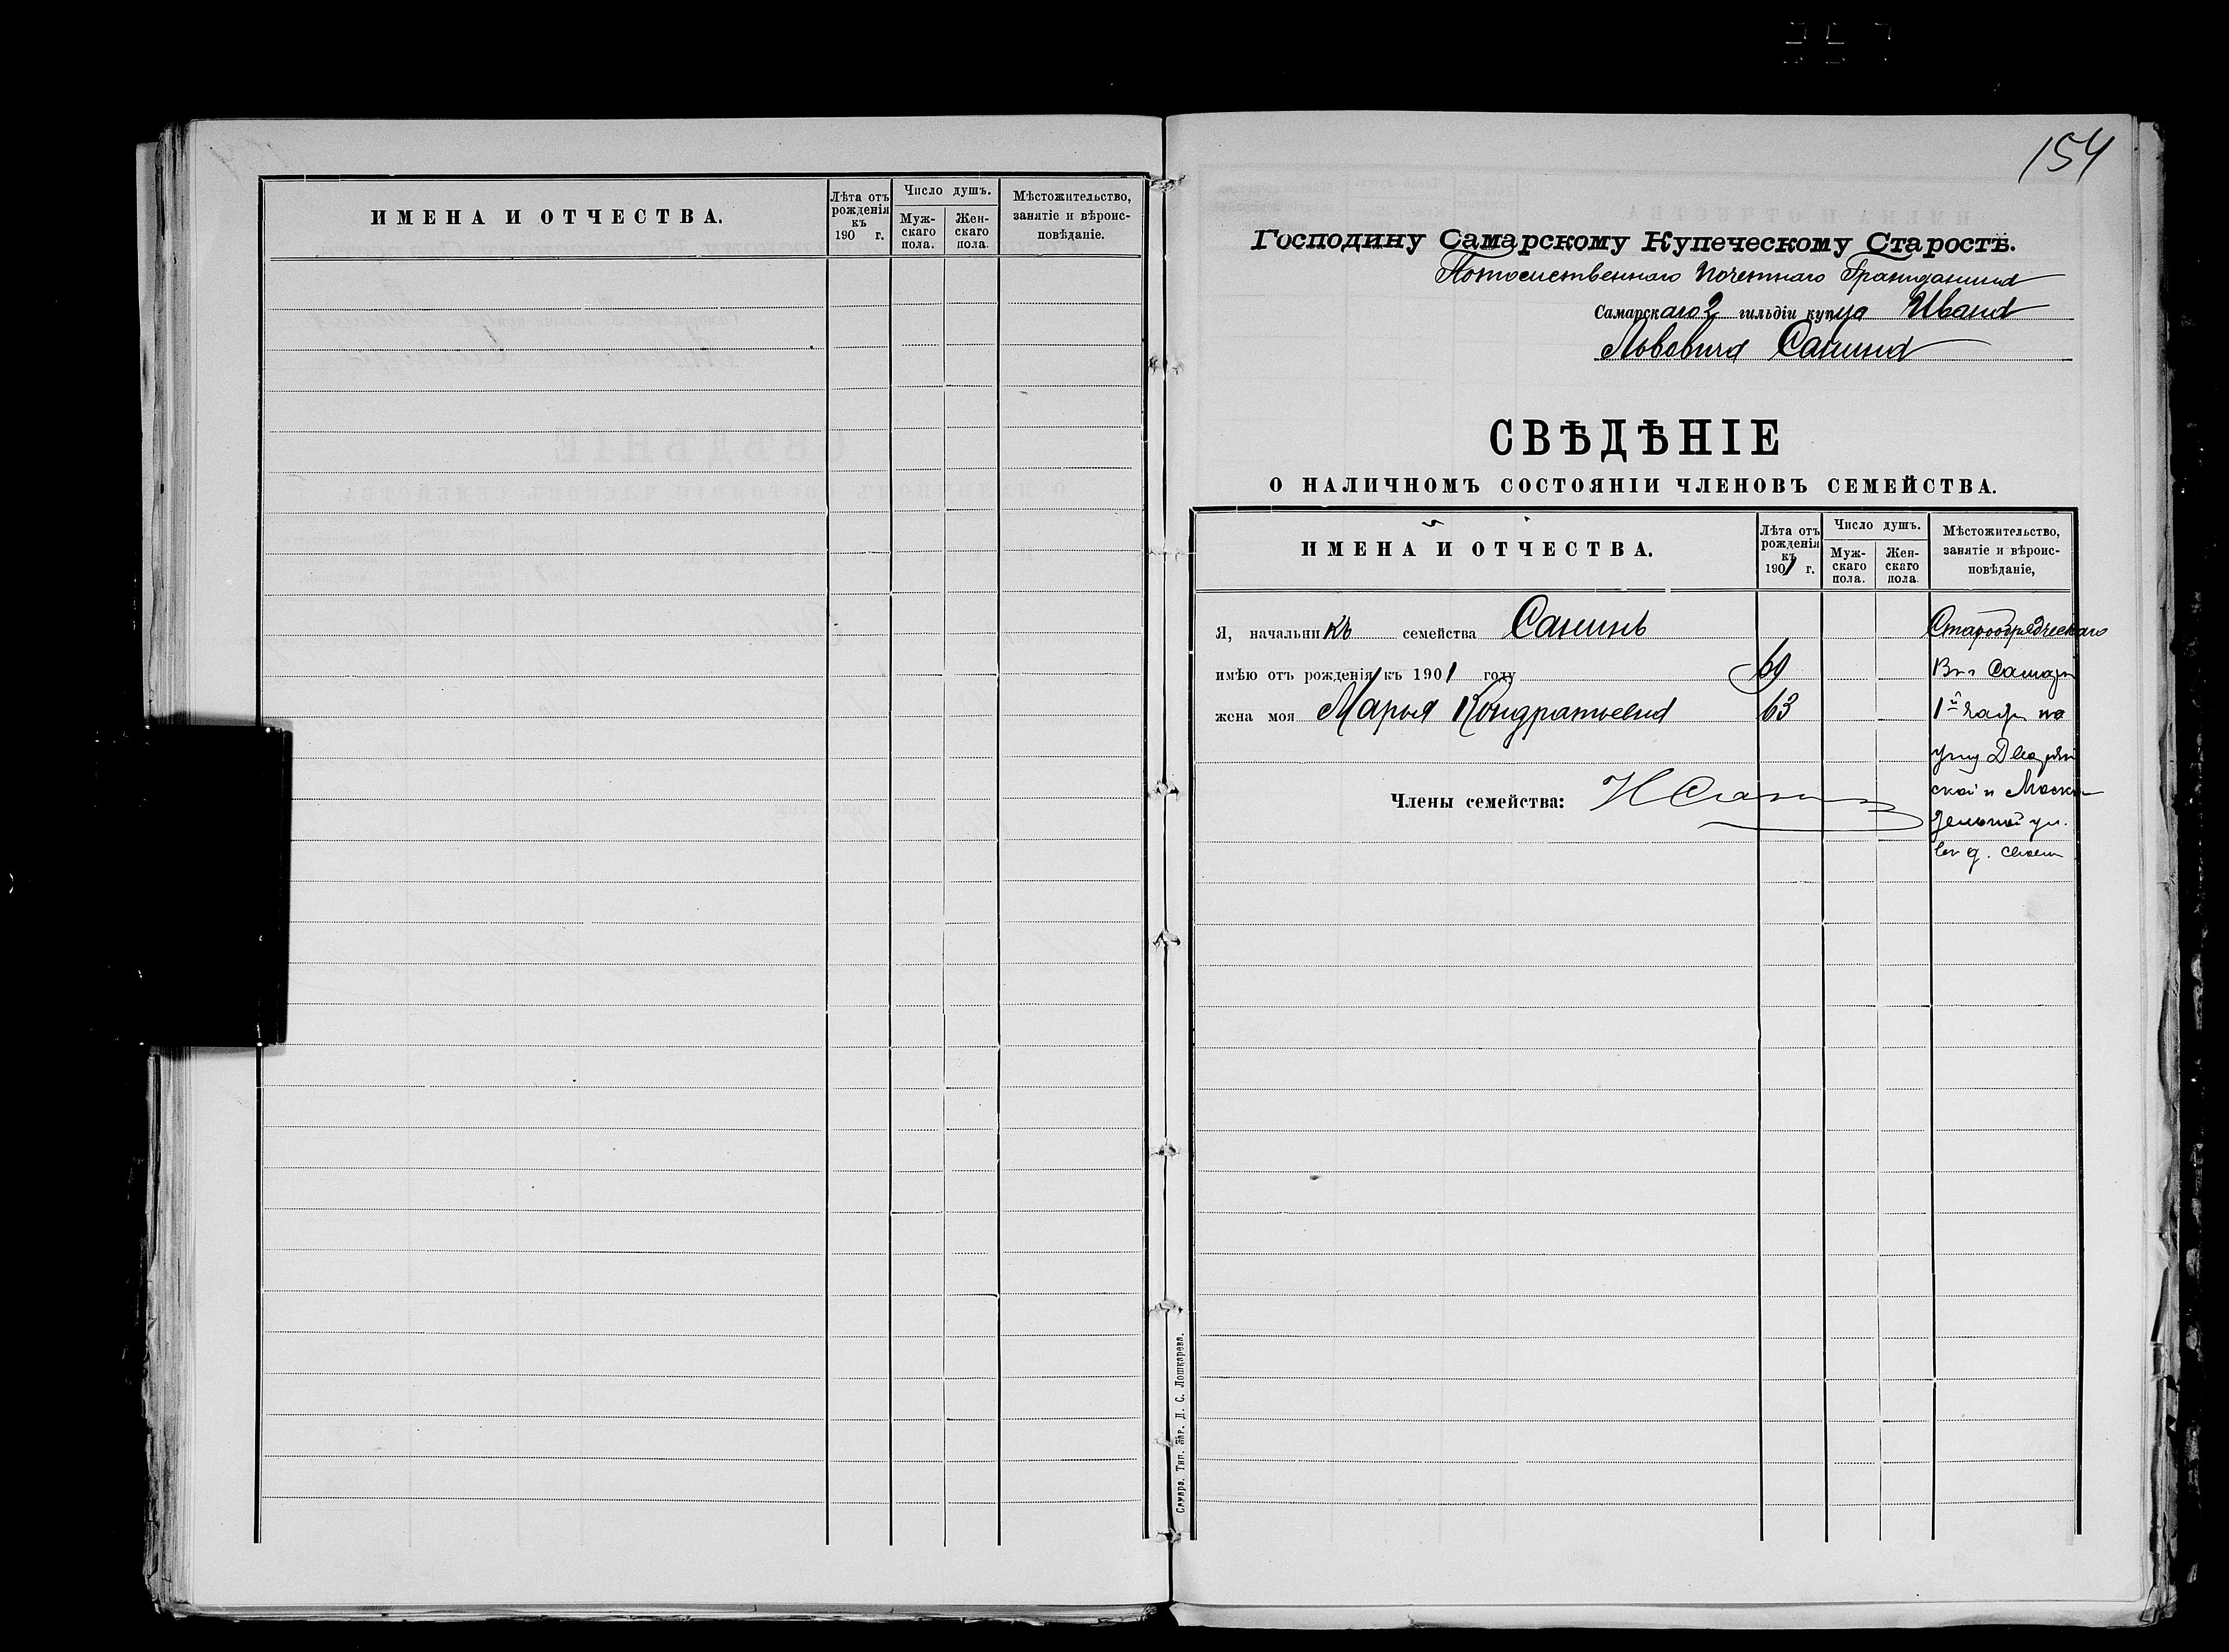 ИМЕНА И ОТЧЕСТВА.
Лѣта отъ рожденія къ 190 г.
Число душъ.
Мужскаго пола.
Женскаго пола.
Мѣстожительство, занятіе и вѣроисповѣданіе.
154
Господину Самарскому Купеческому Старостѣ.
Потомственнаго Почетнаго Гражданина
Самарскаго 2 гильдіи купца Ивана
Львовича Санина
СВѢДѢНІЕ
О НАЛИЧНОМЪ СОСТОЯНІИ ЧЛЕНОВЪ СЕМЕЙСТВА.
ИМЕНА И ОТЧЕСТВА.
Лѣта отъ рожденія къ 1901 г.
Число душъ.
Мужскаго пола.
Женскаго пола.
Мѣстожительство, занятіе и вѣроисповѣданіе,
Я, начальникъ семейства Санинъ Старообрядческаго
имѣю отъ рожденія къ 1901 году 69 Въ г Самарѣ
жена моя Марья Кондратьевна 63 1й части на
углу Дворян
ской и Моска
Члены семейства: И Санинъ
дельной ул.
въ д. своемъ
Самара. Тип. Зар. Д. С. Лошкарева.